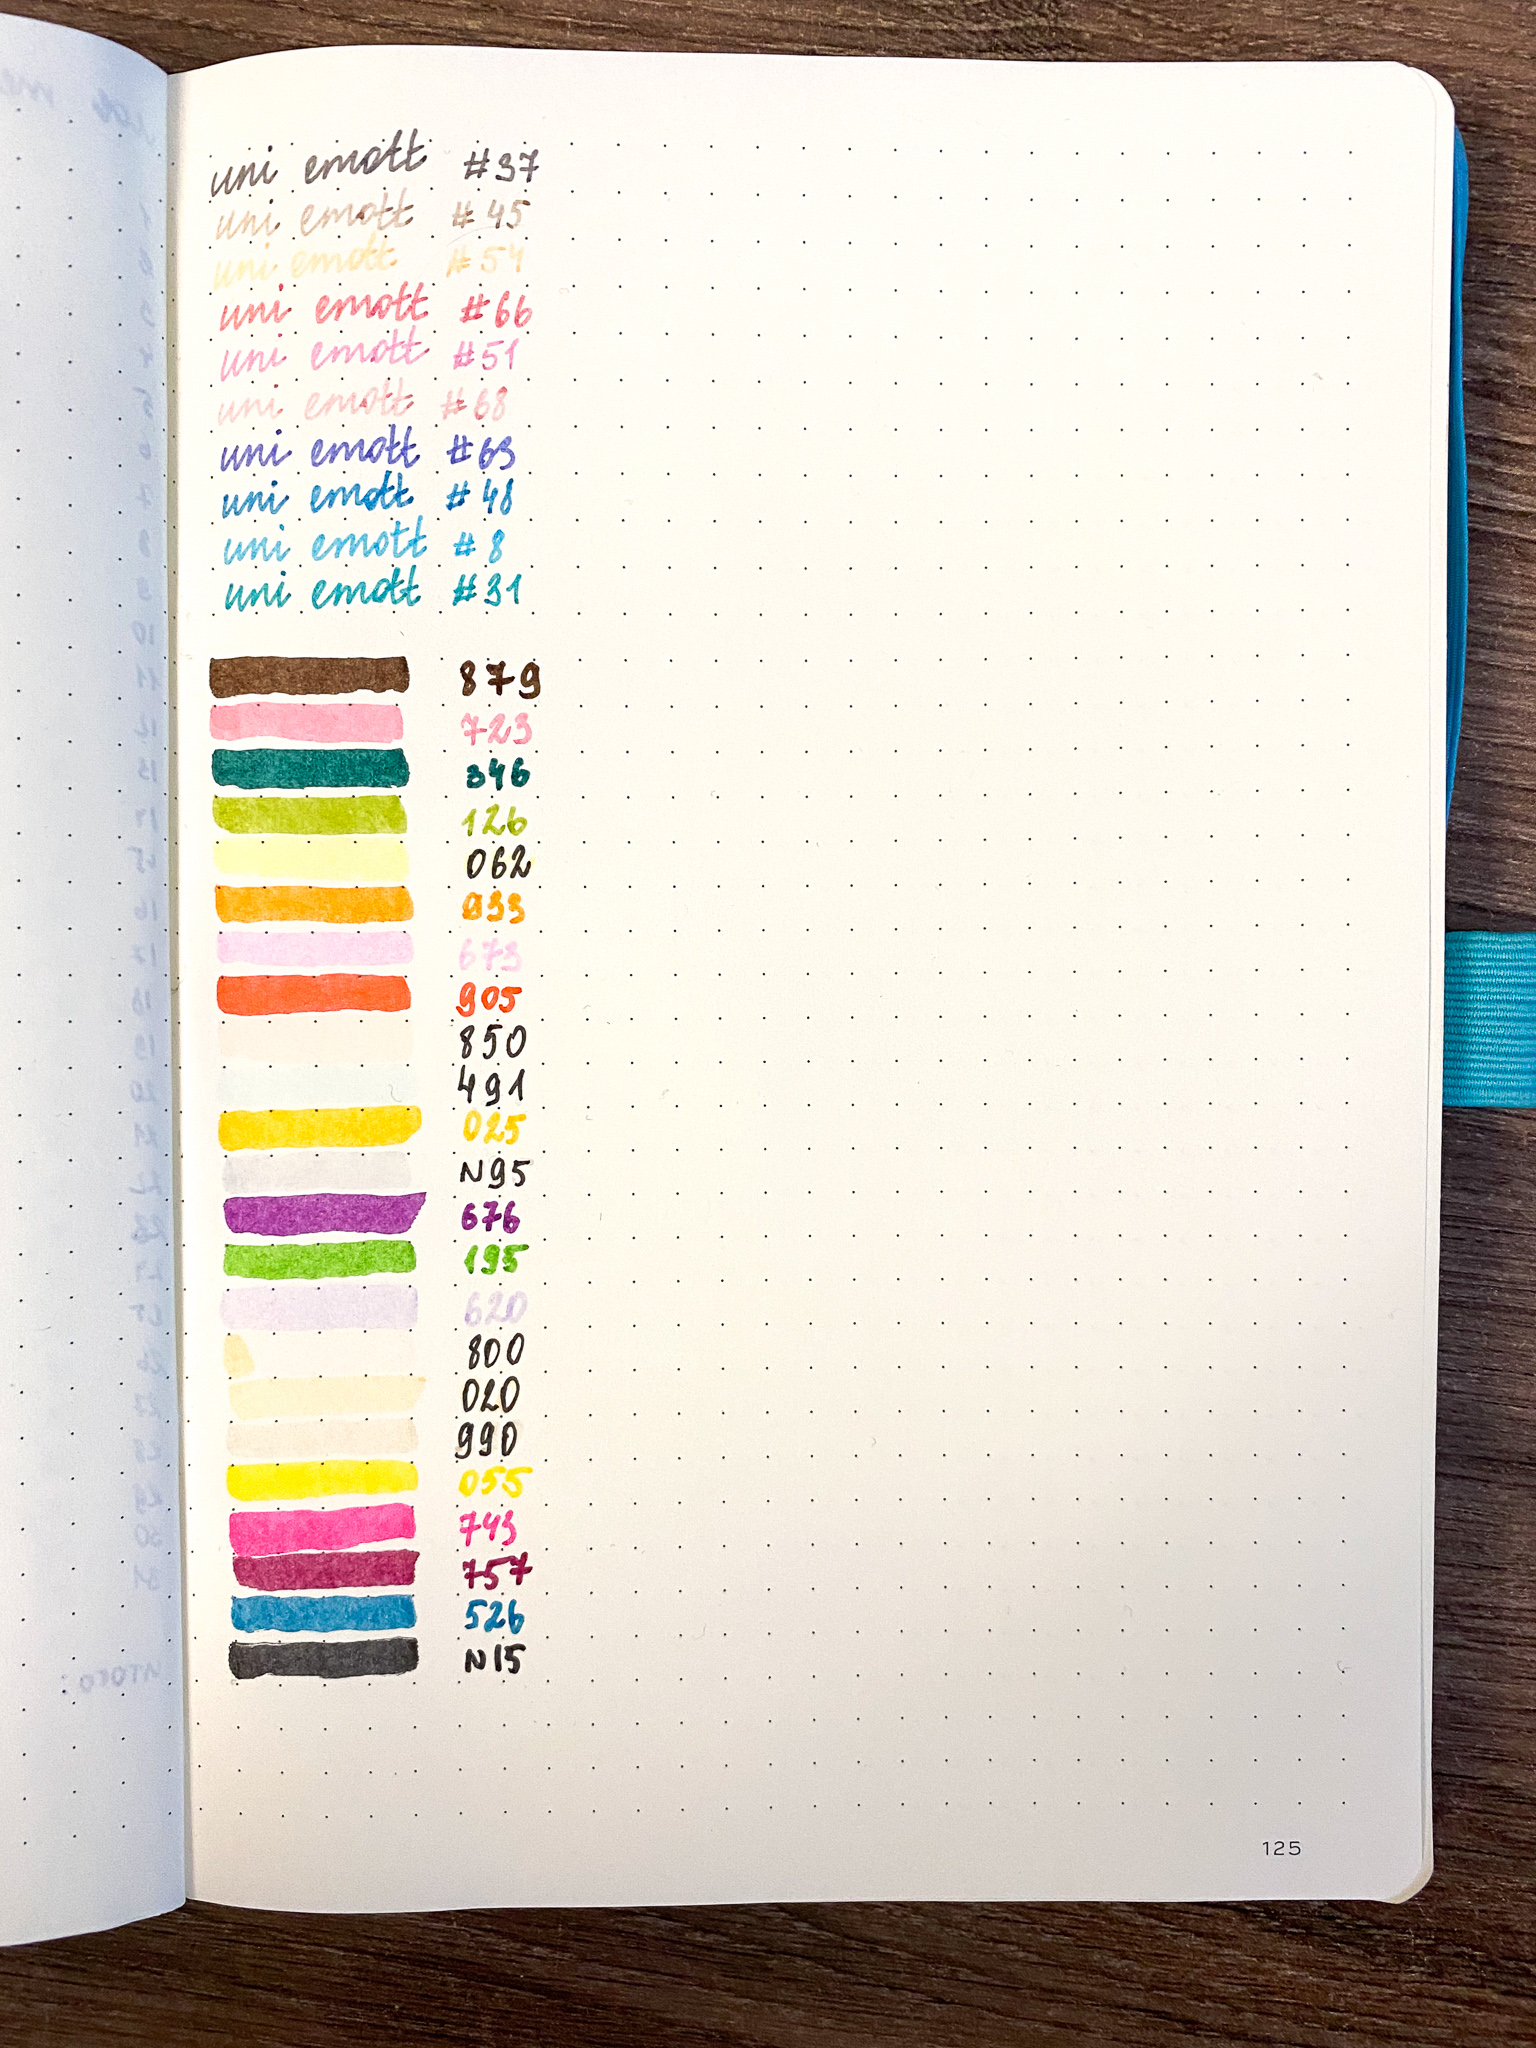 uni emott #37
uni emott #45
uni emott #54
uni emott #66
uni emott #51
uni emott #68
uni emott #63
uni emott #48
uni emott #8
uni emott #31
879
723
346
126
062
033
673
905
850
491
025
N95
676
195
620
800
020
990
055
743
757
526
N15
125